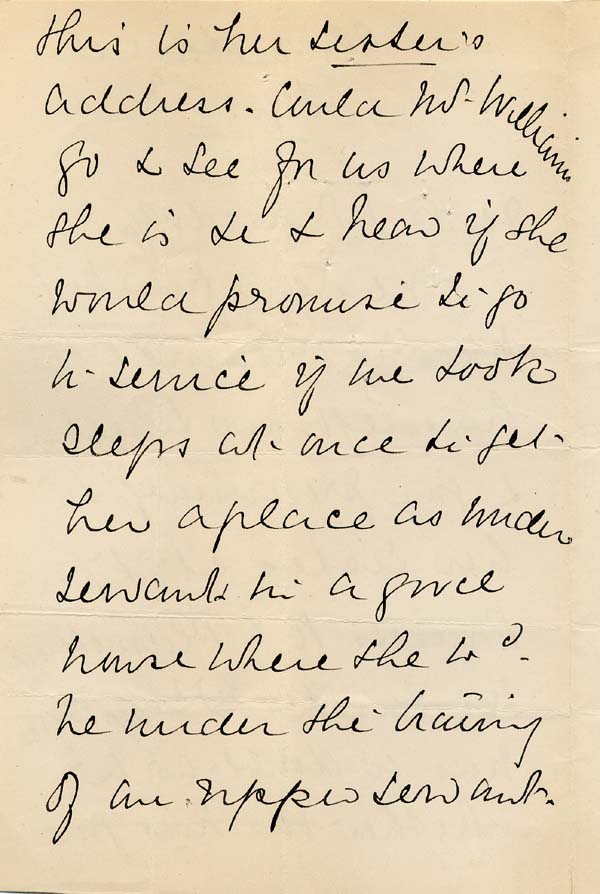 this is her sister's
address. Could Mr. Williams
go & see for us where
she is & hear if she
would promise to go
to service if we took
steps at once to get
her a place as under
servant in a good
house where she wd.
be under the training
of an upper servant.